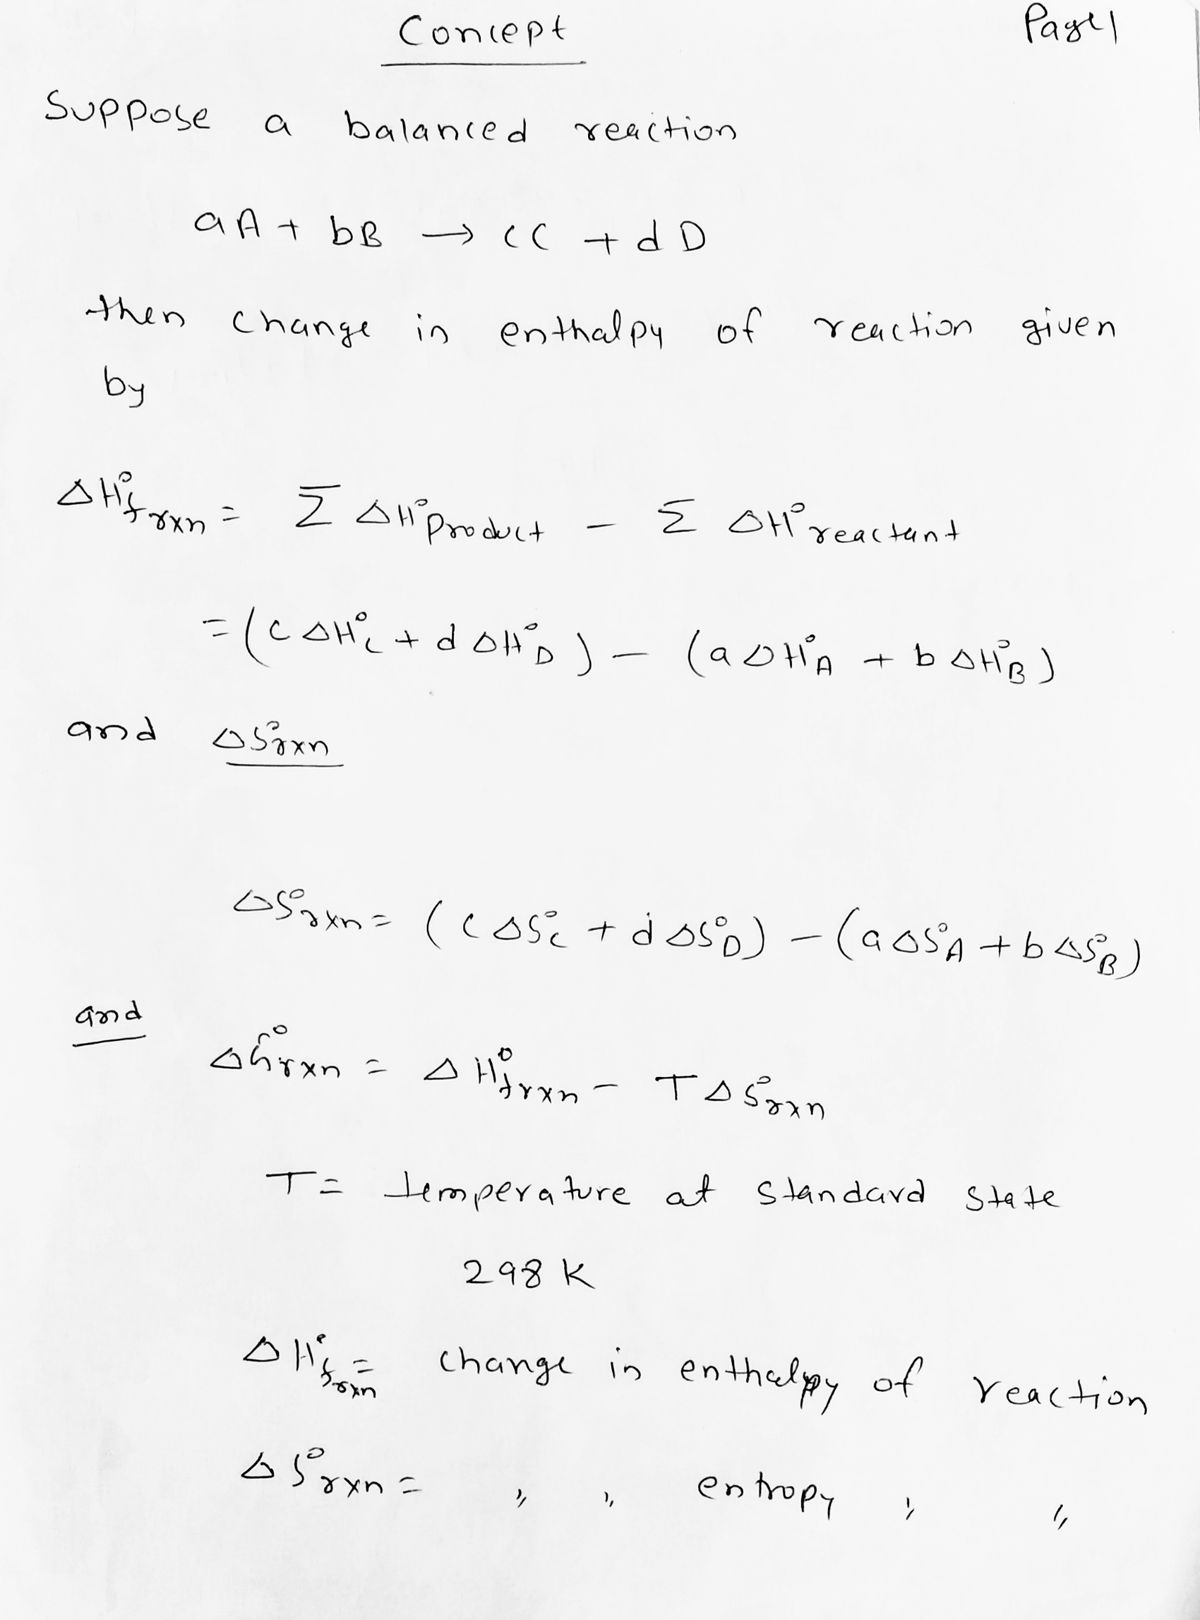 Concept
Page 1
Suppose a balanced reaction
aA + bB → cC + dD
then change in enthalpy of reaction given
by
ΔH°f rxn = Σ ΔH°product − Σ ΔH°reactant
= (c ΔH°C + d ΔH°D) − (a ΔH°A + b ΔH°B)
and ΔS°rxn
ΔS°rxn = (c ΔS°C + d ΔS°D) − (a ΔS°A + b ΔS°B)
and
ΔG°rxn = ΔH°f rxn − TΔS°rxn
T = temperature at standard state
298 K
ΔH°f rxn = change in enthalpy of reaction
ΔS°rxn = ,, ,, entropy ,, ,,